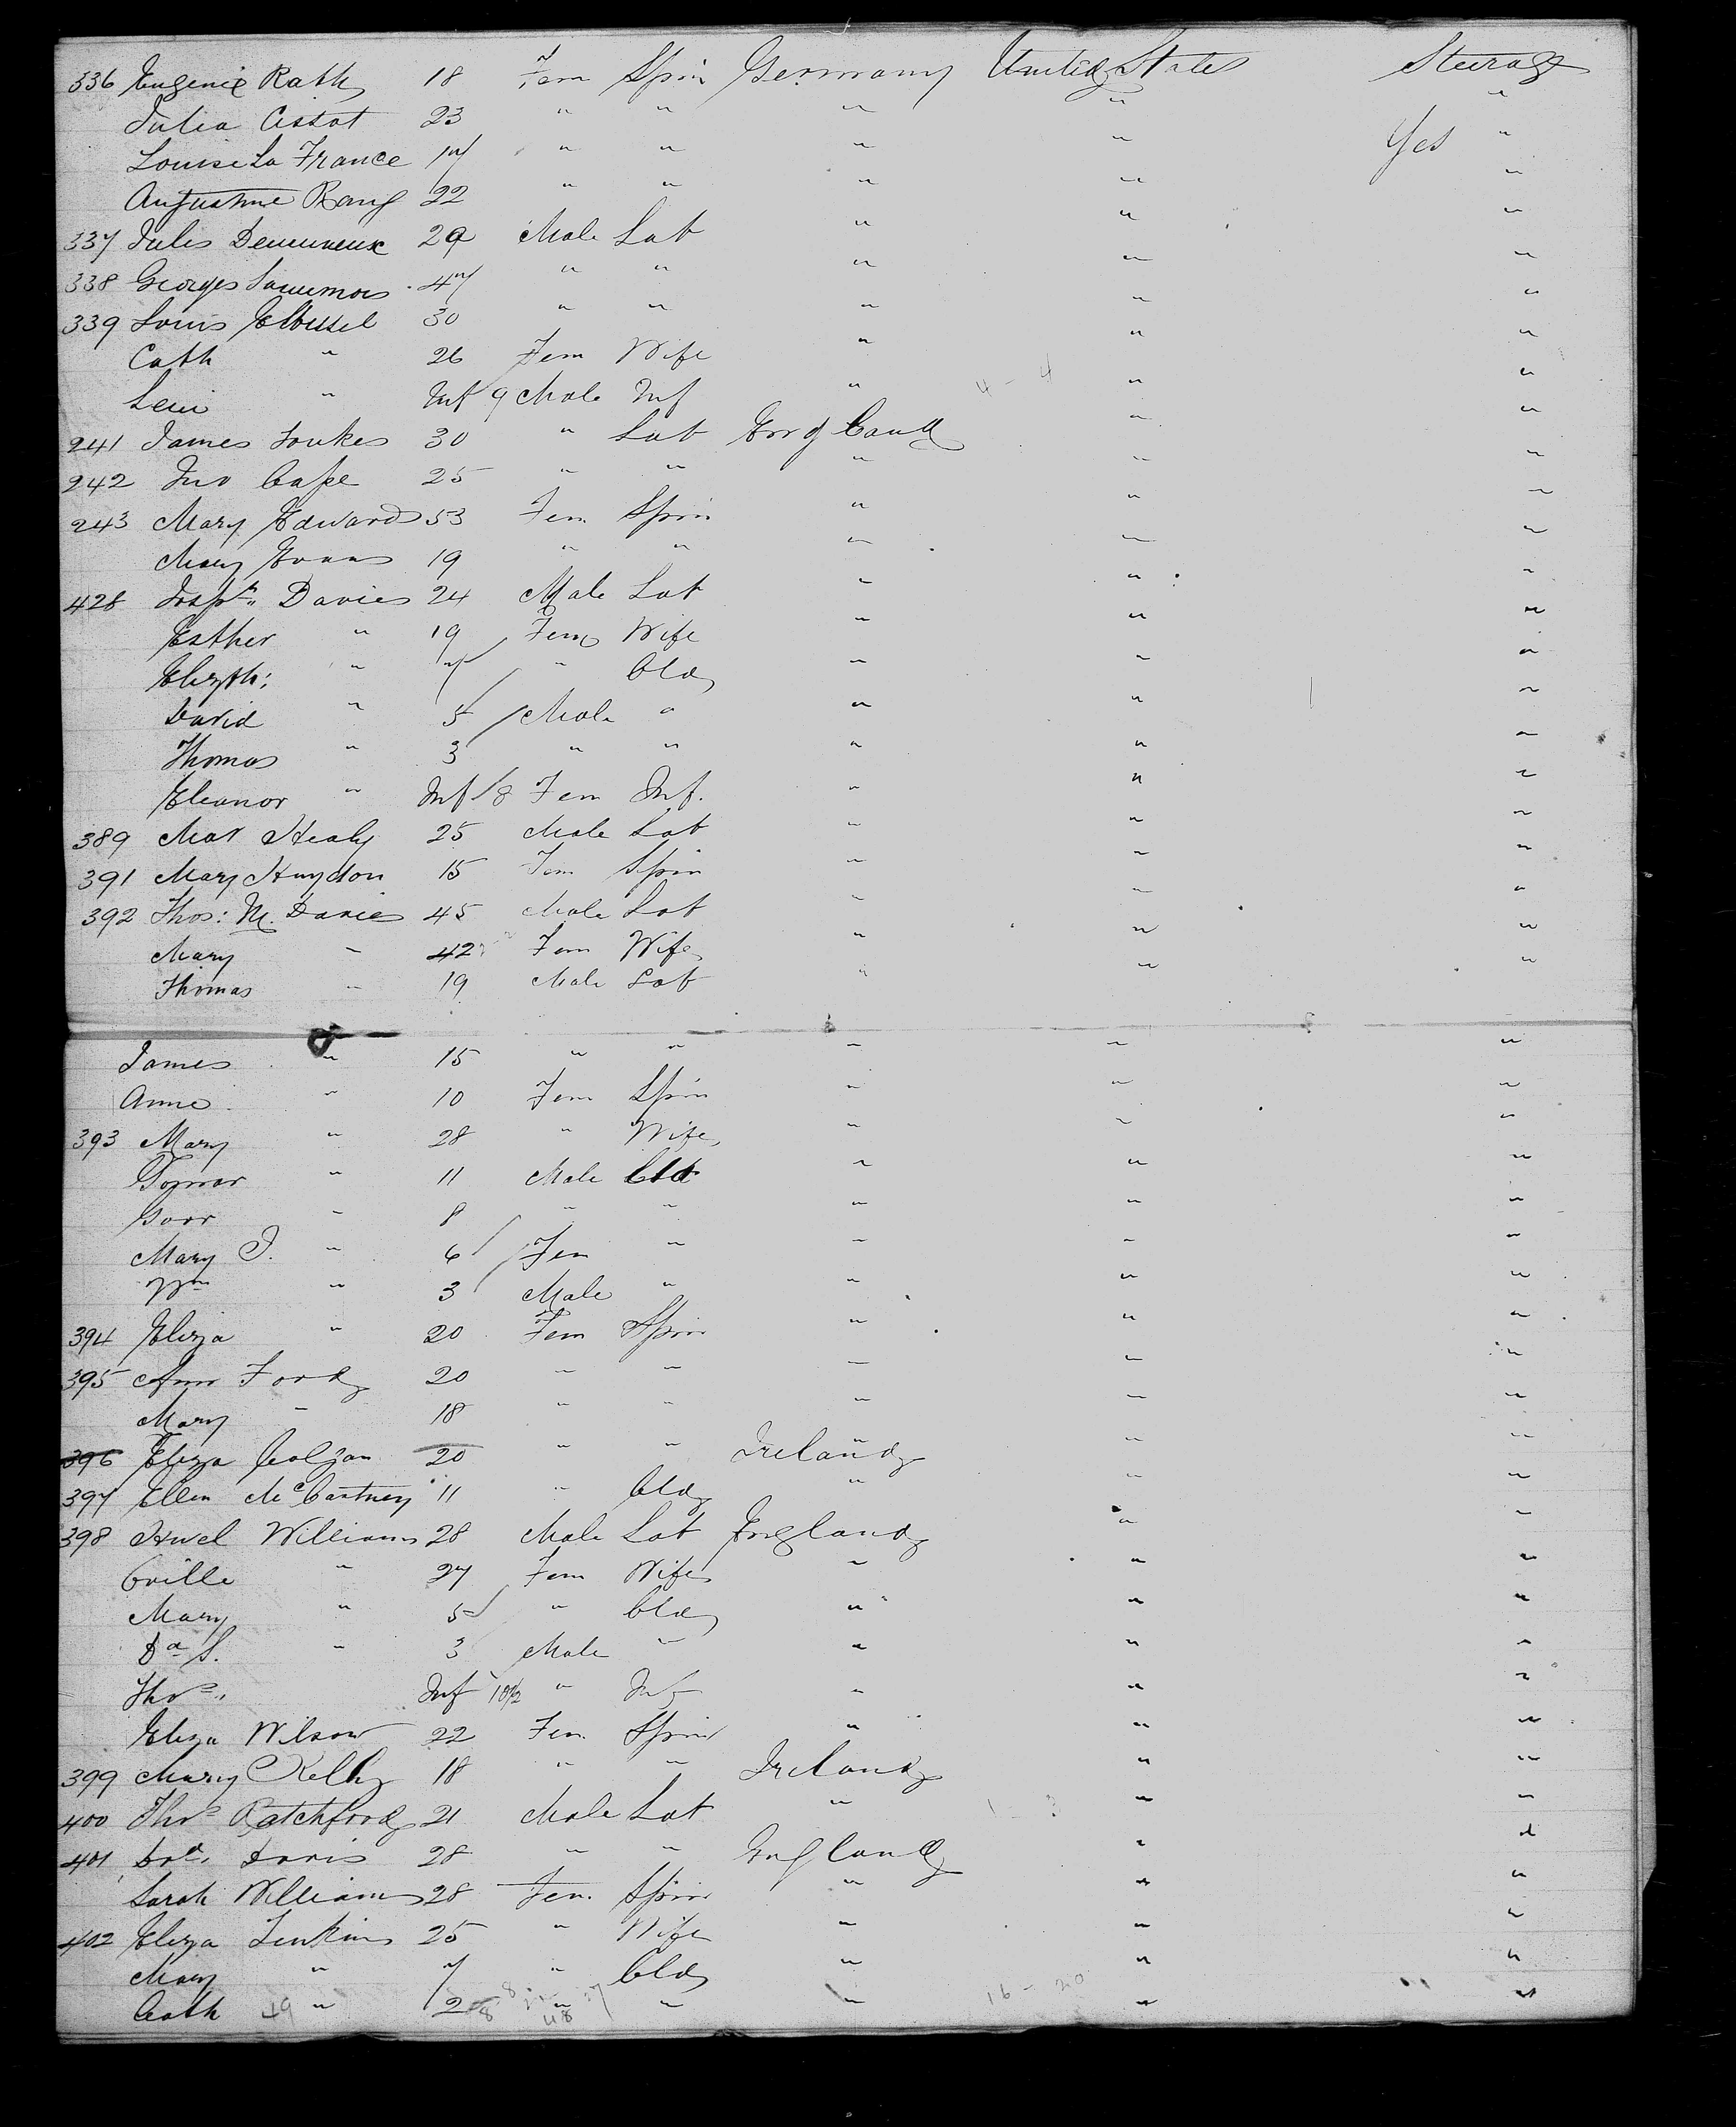 336 Eugenie Rath 18 Fem Spin Germany United States Steerage
Julia Cissot 23 " " " " "
Louise La France 17 " " " " Yes "
Augustine Rang 22 " " " " "
337 Jules 29 Male Lab " " "
338 Georges 47 " " " " "
339 Louis 30 " " " " "
Cath " 26 Fem Wife " " "
" Inf 9 Male Inf " 4 - 4 " "
241 James 30 " Lab England " "
242 Jno Cape 25 " " " " "
243 Mary Edwards 53 Fem Spin " " "
Mary Evans 19 " " " " "
428 Josph. Davies 24 Male Lab " " "
Esther " 19 Fem Wife " " "
Elizth: " 7 " Cld " " "
David " 5 Male " " " "
Thomas " 3 " " " " "
Eleanor " Inf 8 Fem Inf. " " "
389 Mar Healy 25 Male Lab " " "
391 Mary Haydon 15 Fem Spin " " "
392 Thos: M. Davies 45 Male Lab " " "
Mary " 42 Fem Wife " " "
Thomas " 19 Male Lab " " "
James " 15 " " " " "
Anne " 10 Fem Spin " " "
393 Mary " 28 " Wife " " "
" 11 Male Cld " " "
" 8 " " " " "
Mary J. " 6 Fem " " " "
Wm " 3 Male " " " "
394 Eliza " 20 Fem Spin " " "
395 Ann Ford 20 " " " " "
Mary " 18 " " " " "
396 Eliza 20 " " Ireland " "
397 Ellen McCartney 11 " Cld " " "
398 Williams 28 Male Lab England " "
" 27 Fem Wife " " "
Mary " 5 " Cld " " "
Da S. " 3 Male " " " "
Thos. Inf 10/2 " Inf " " "
Eliza Wilson 22 Fem Spin " " "
399 Mary Kelly 18 " " Ireland " "
400 Thos Ratchford 21 Male Lab " " "
401 28 " " England " "
Sarah Williams 28 Fem. Spin " " "
402 Eliza Jenkins 25 " Wife " " "
Mary " 7 " Cld " " "
Cath 49 " 2 " " " 16 - 20 " "